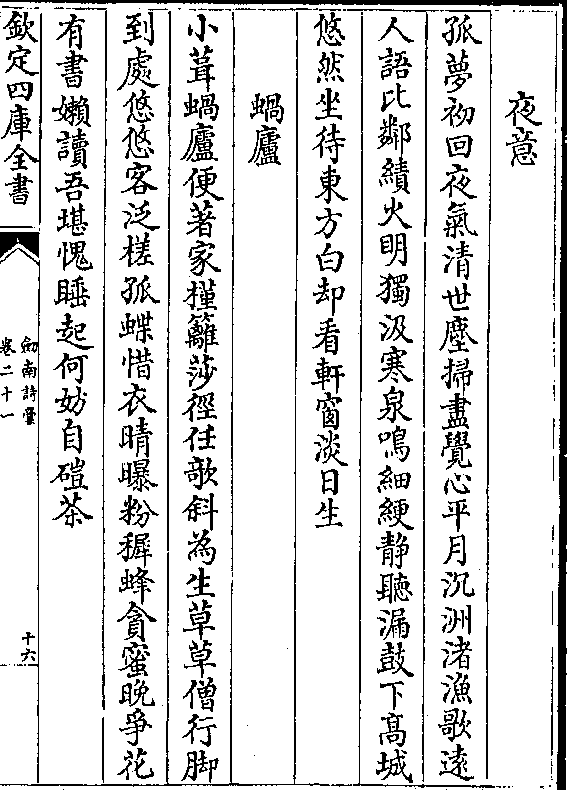 夜意
孤夢初回夜氣清世塵掃盡覺心平月沉洲渚漁歌遠
人語比鄰績火明獨汲寒泉鳴細綆静聽漏鼓下髙城
悠然坐待東方白却看軒窗淡日生
蝸廬
小葺蝸廬便著家槿籬莎徑任欹斜為生草草僧行脚
到處悠悠客泛槎孤蝶惜衣晴曝粉穉蜂貪蜜晚爭花
有書嬾讀吾堪愧睡起何妨自磑茶
欽定四庫全書
劒南詩藁
卷二十一
十六